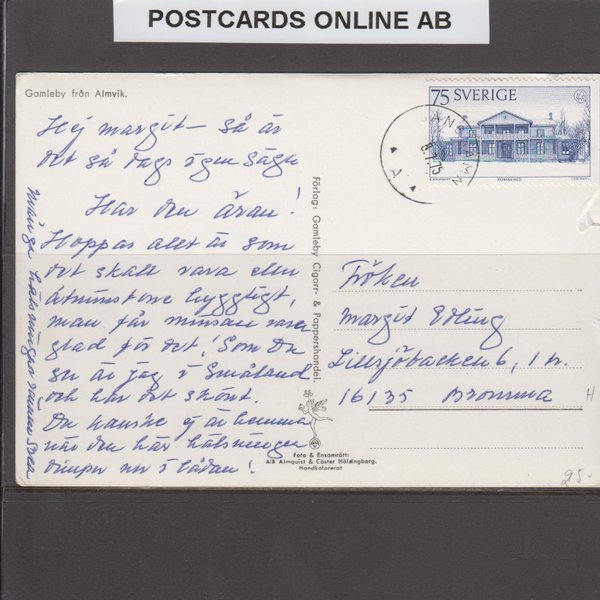 POSTCARDS ONLINE AB
Gamleby från Almvik.
75 SVERIGE
8.7.75
A
Hej Margit – Så är
det så dags igen säga
Har den äran!
Hoppas allt är som
det skall vara eller
åtminstone hyggligt,
man får minsann vara
glad för det! Som Du
ser är jag i Småland
och har det skönt.
Du kanske ej är hemma
när den här hälsningen
dimper ner i lådan!
Många hälsningar
Förlag: Gamleby Cigarr- & Pappershandel.
Fröken
Margit Edling
Lillsjöbacken 6, 1 tr.
16135 Bromma
H
Foto & Ensamrätt:
A/B Almquist & Cöster Hälsingborg.
Handkolorerat
25-